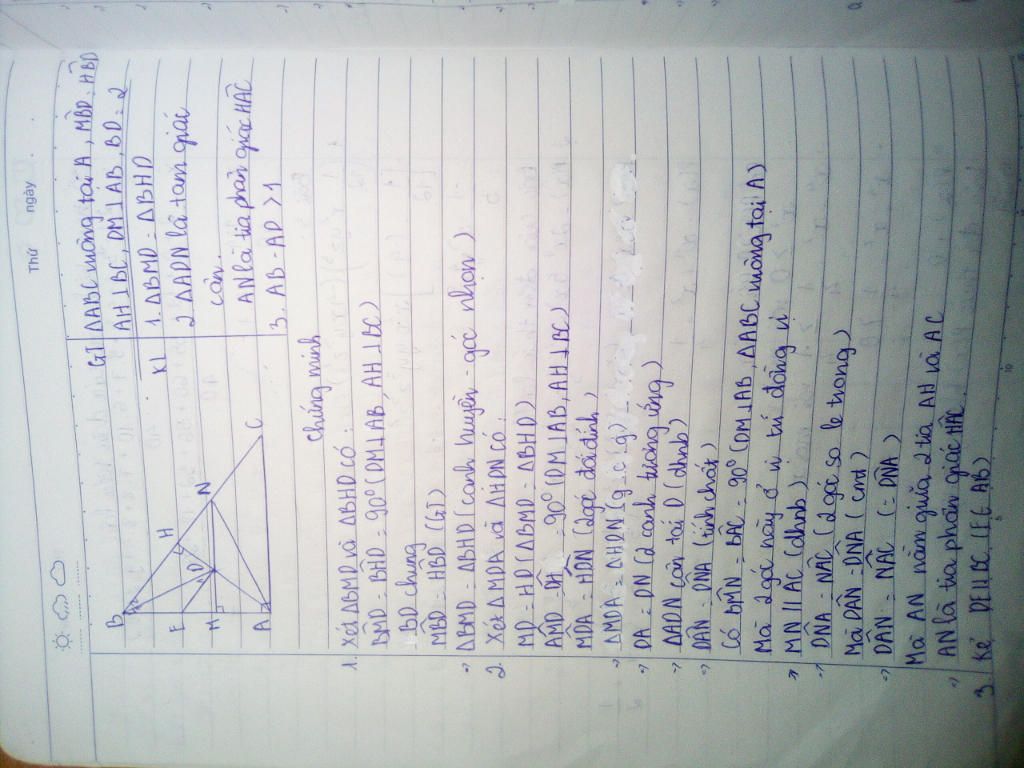 Thứ
ngày
B
H
E
D
N
M
A
C
GT ΔABC vuông tại A, M̂BD = ĤBD
AH⊥BC, DM⊥AB, BD = 2
KL 1. ΔBMD = ΔBHD
2. ΔADN là tam giác
cân.
AN là tia phân giác ĤAC
3. AB - AD > 1
Chứng minh
1. Xét ΔBMD và ΔBHD có:
B̂MD = B̂HD = 90° (DM⊥AB, AH⊥BC)
BD chung
M̂BD = ĤBD (GT)
=> ΔBMD = ΔBHD (cạnh huyền - góc nhọn)
2. Xét ΔMDA và ΔHDN có:
MD = HD (ΔBMD = ΔBHD)
= 90° (DM⊥AB, AH⊥BC)
M̂DA = ĤDN (2 góc đối đỉnh)
=> ΔMDA = ΔHDN (g.c.g)
=> DA = DN (2 cạnh tương ứng)
=> ΔADN cân tại D (dhnb)
=> D̂AN = D̂NA (tính chất)
Có B̂MN = B̂AC = 90° (DM⊥AB, ΔABC vuông tại A)
Mà 2 góc này ở vị trí đồng vị
=> MN // AC (dhnb)
=> D̂NA = N̂AC (2 góc so le trong)
Mà D̂AN = D̂NA (cmt)
=> D̂AN = N̂AC (= D̂NA)
Mà AN nằm giữa 2 tia AH và AC
=> AN là tia phân giác ĤAC
3. Kẻ DE // BC (E ∈ AB)